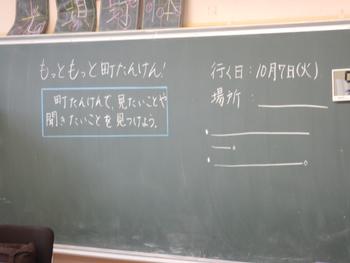 もっともっと町たんけん!
町たんけんで、見たいことや
聞きたいことを見つけよう。
行く日:10月7日(火)
場所: